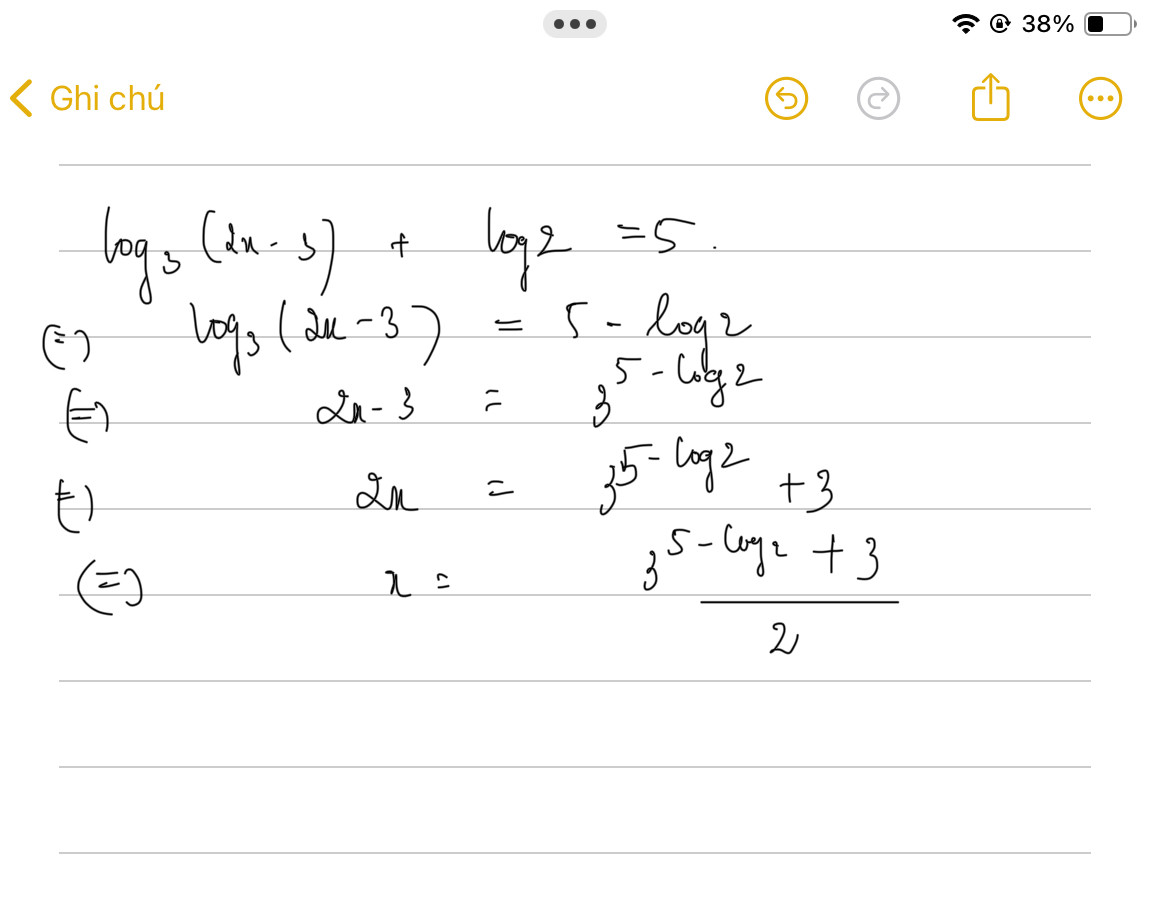 38%
Ghi chú
log₃(2x - 3) + log 2 = 5.
(=) log₃(2x - 3) = 5 - log 2
(=) 2x - 3 = 3^(5 - log 2)
(=) 2x = 3^(5 - log 2) + 3
(=) x = (3^(5 - log 2) + 3) / 2